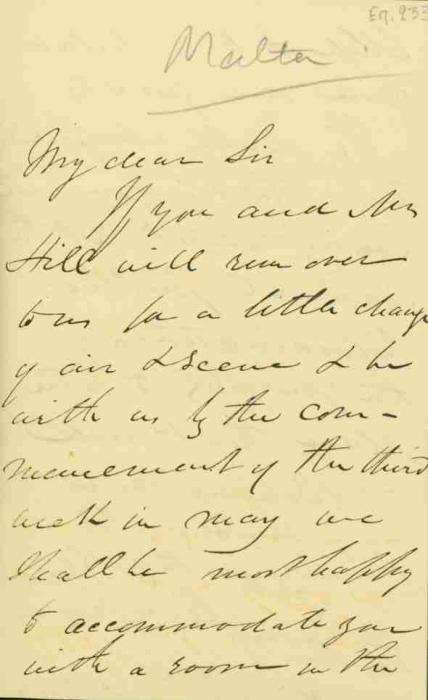 En. 233
Malta
My dear Sir
If you and Mrs
Hill will run over
to us for a little change
of air & scene & be
with us by the com-
mencement of the third
week in may we
shall be most happy
to accommodate you
with a room in the